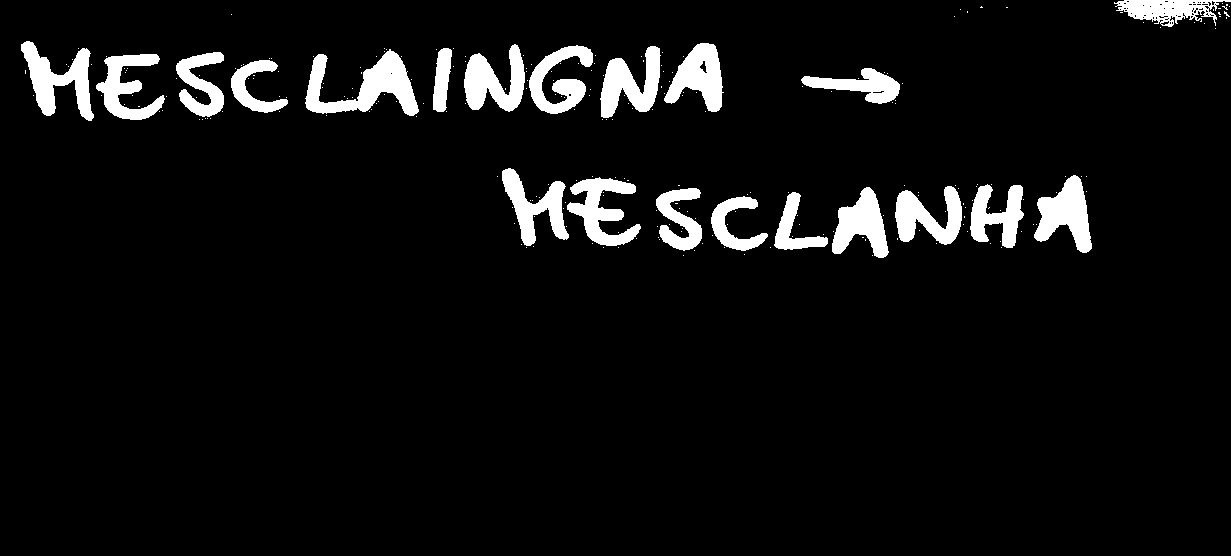 MESCLAINGNA →
MESCLANHA